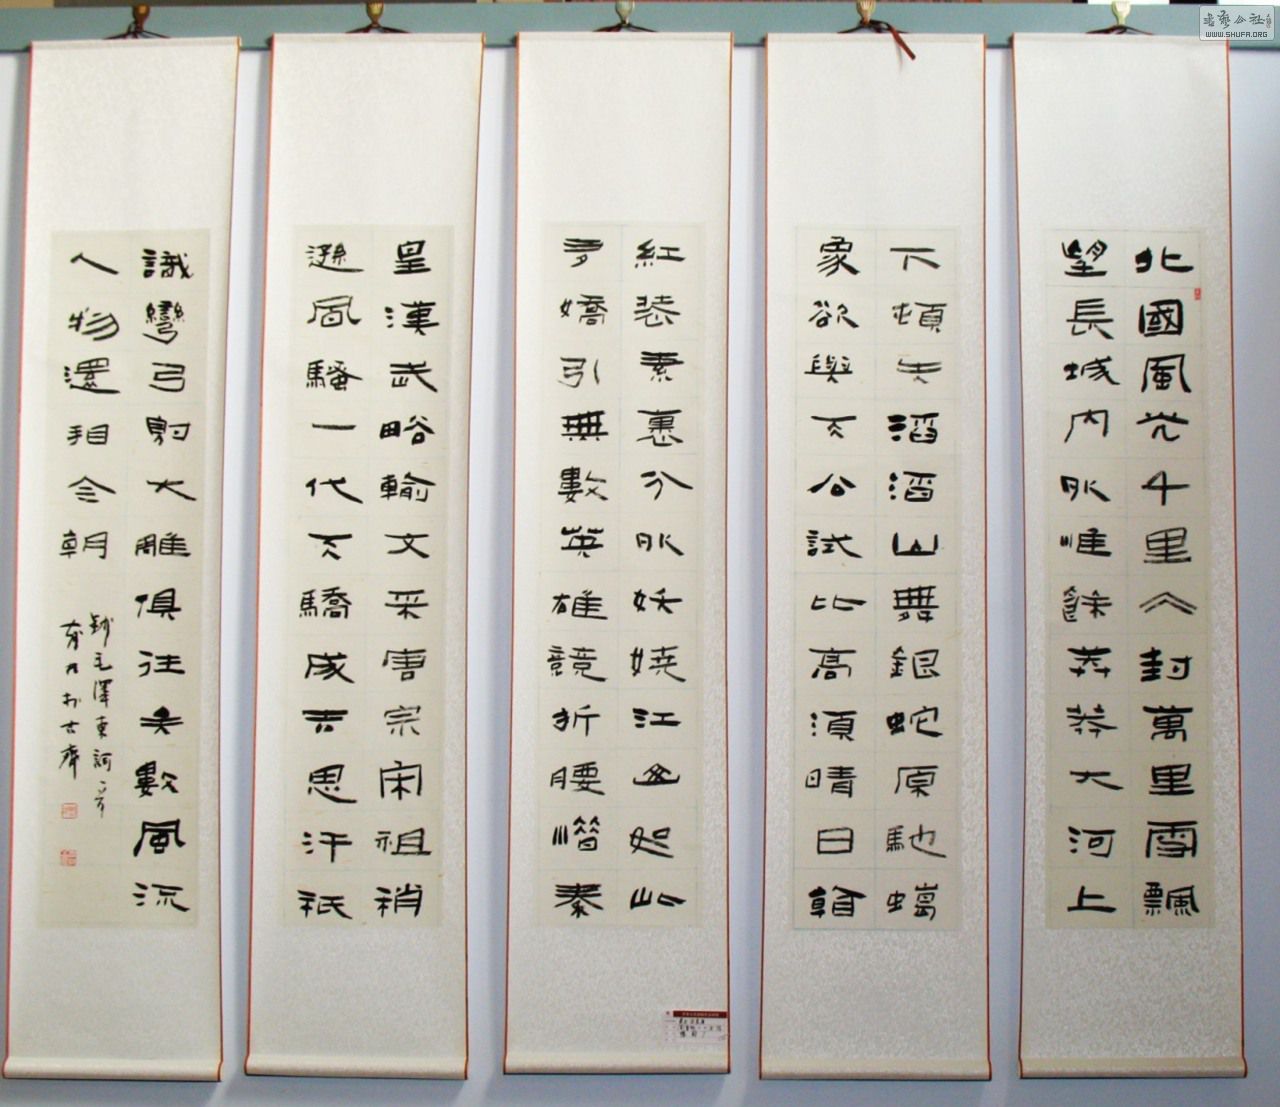 北國風光千里仌封萬里雪飄
望長城內外惟餘莽莽大河上
下頓失滔滔山舞銀蛇原馳蠟
象欲與天公試比高須晴日看
紅裝素裹分外妖嬈江山如此
多嬌引無數英雄競折腰惜秦
皇漢武略輸文采唐宗宋祖稍
遜風騷一代天驕成吉思汗祇
識彎弓射大雕俱往矣數風流
人物還看今朝
鈔毛澤東詞
書藝公社
WWW.SHUFA.ORG